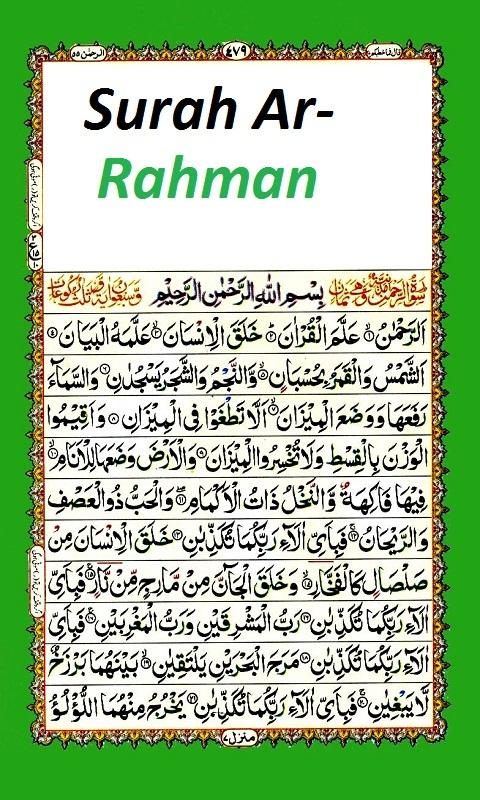 الرحمٰن ۵۵ ۴۷۹ قال فما خطبكم ۲۷
Surah Ar-
Rahman
بِسْمِ اللهِ الرَّحْمٰنِ الرَّحِيْمِ
اَلرَّحْمٰنُ ۙ۱ عَلَّمَ الْقُرْاٰنَ ؕ۲ خَلَقَ الْاِنْسَانَ ۙ۳ عَلَّمَهُ الْبَيَانَ ۴
اَلشَّمْسُ وَالْقَمَرُ بِحُسْبَانٍ ۙ۵ وَّالنَّجْمُ وَالشَّجَرُ يَسْجُدٰنِ ۶ وَالسَّمَآءَ
رَفَعَهَا وَوَضَعَ الْمِيْزَانَ ۙ۷ اَلَّا تَطْغَوْا فِى الْمِيْزَانِ ۸ وَاَقِيْمُوا
الْوَزْنَ بِالْقِسْطِ وَلَا تُخْسِرُوا الْمِيْزَانَ ۹ وَالْاَرْضَ وَضَعَهَا لِلْاَنَامِ ۙ۱۰
فِيْهَا فَاكِهَةٌ وَّالنَّخْلُ ذَاتُ الْاَكْمَامِ ۖ۱۱ وَالْحَبُّ ذُو الْعَصْفِ
وَالرَّيْحَانُ ۚ۱۲ فَبِاَىِّ اٰلَآءِ رَبِّكُمَا تُكَذِّبٰنِ ۱۳ خَلَقَ الْاِنْسَانَ مِنْ
صَلْصَالٍ كَالْفَخَّارِ ۙ۱۴ وَخَلَقَ الْجَآنَّ مِنْ مَّارِجٍ مِّنْ نَّارٍ ۚ۱۵ فَبِاَىِّ
اٰلَآءِ رَبِّكُمَا تُكَذِّبٰنِ ۱۶ رَبُّ الْمَشْرِقَيْنِ وَرَبُّ الْمَغْرِبَيْنِ ۚ۱۷ فَبِاَىِّ
اٰلَآءِ رَبِّكُمَا تُكَذِّبٰنِ ۱۸ مَرَجَ الْبَحْرَيْنِ يَلْتَقِيٰنِ ۙ۱۹ بَيْنَهُمَا بَرْزَخٌ
لَّا يَبْغِيٰنِ ۚ۲۰ فَبِاَىِّ اٰلَآءِ رَبِّكُمَا تُكَذِّبٰنِ ۲۱ يَخْرُجُ مِنْهُمَا اللُّؤْلُؤُ
منزل ۷